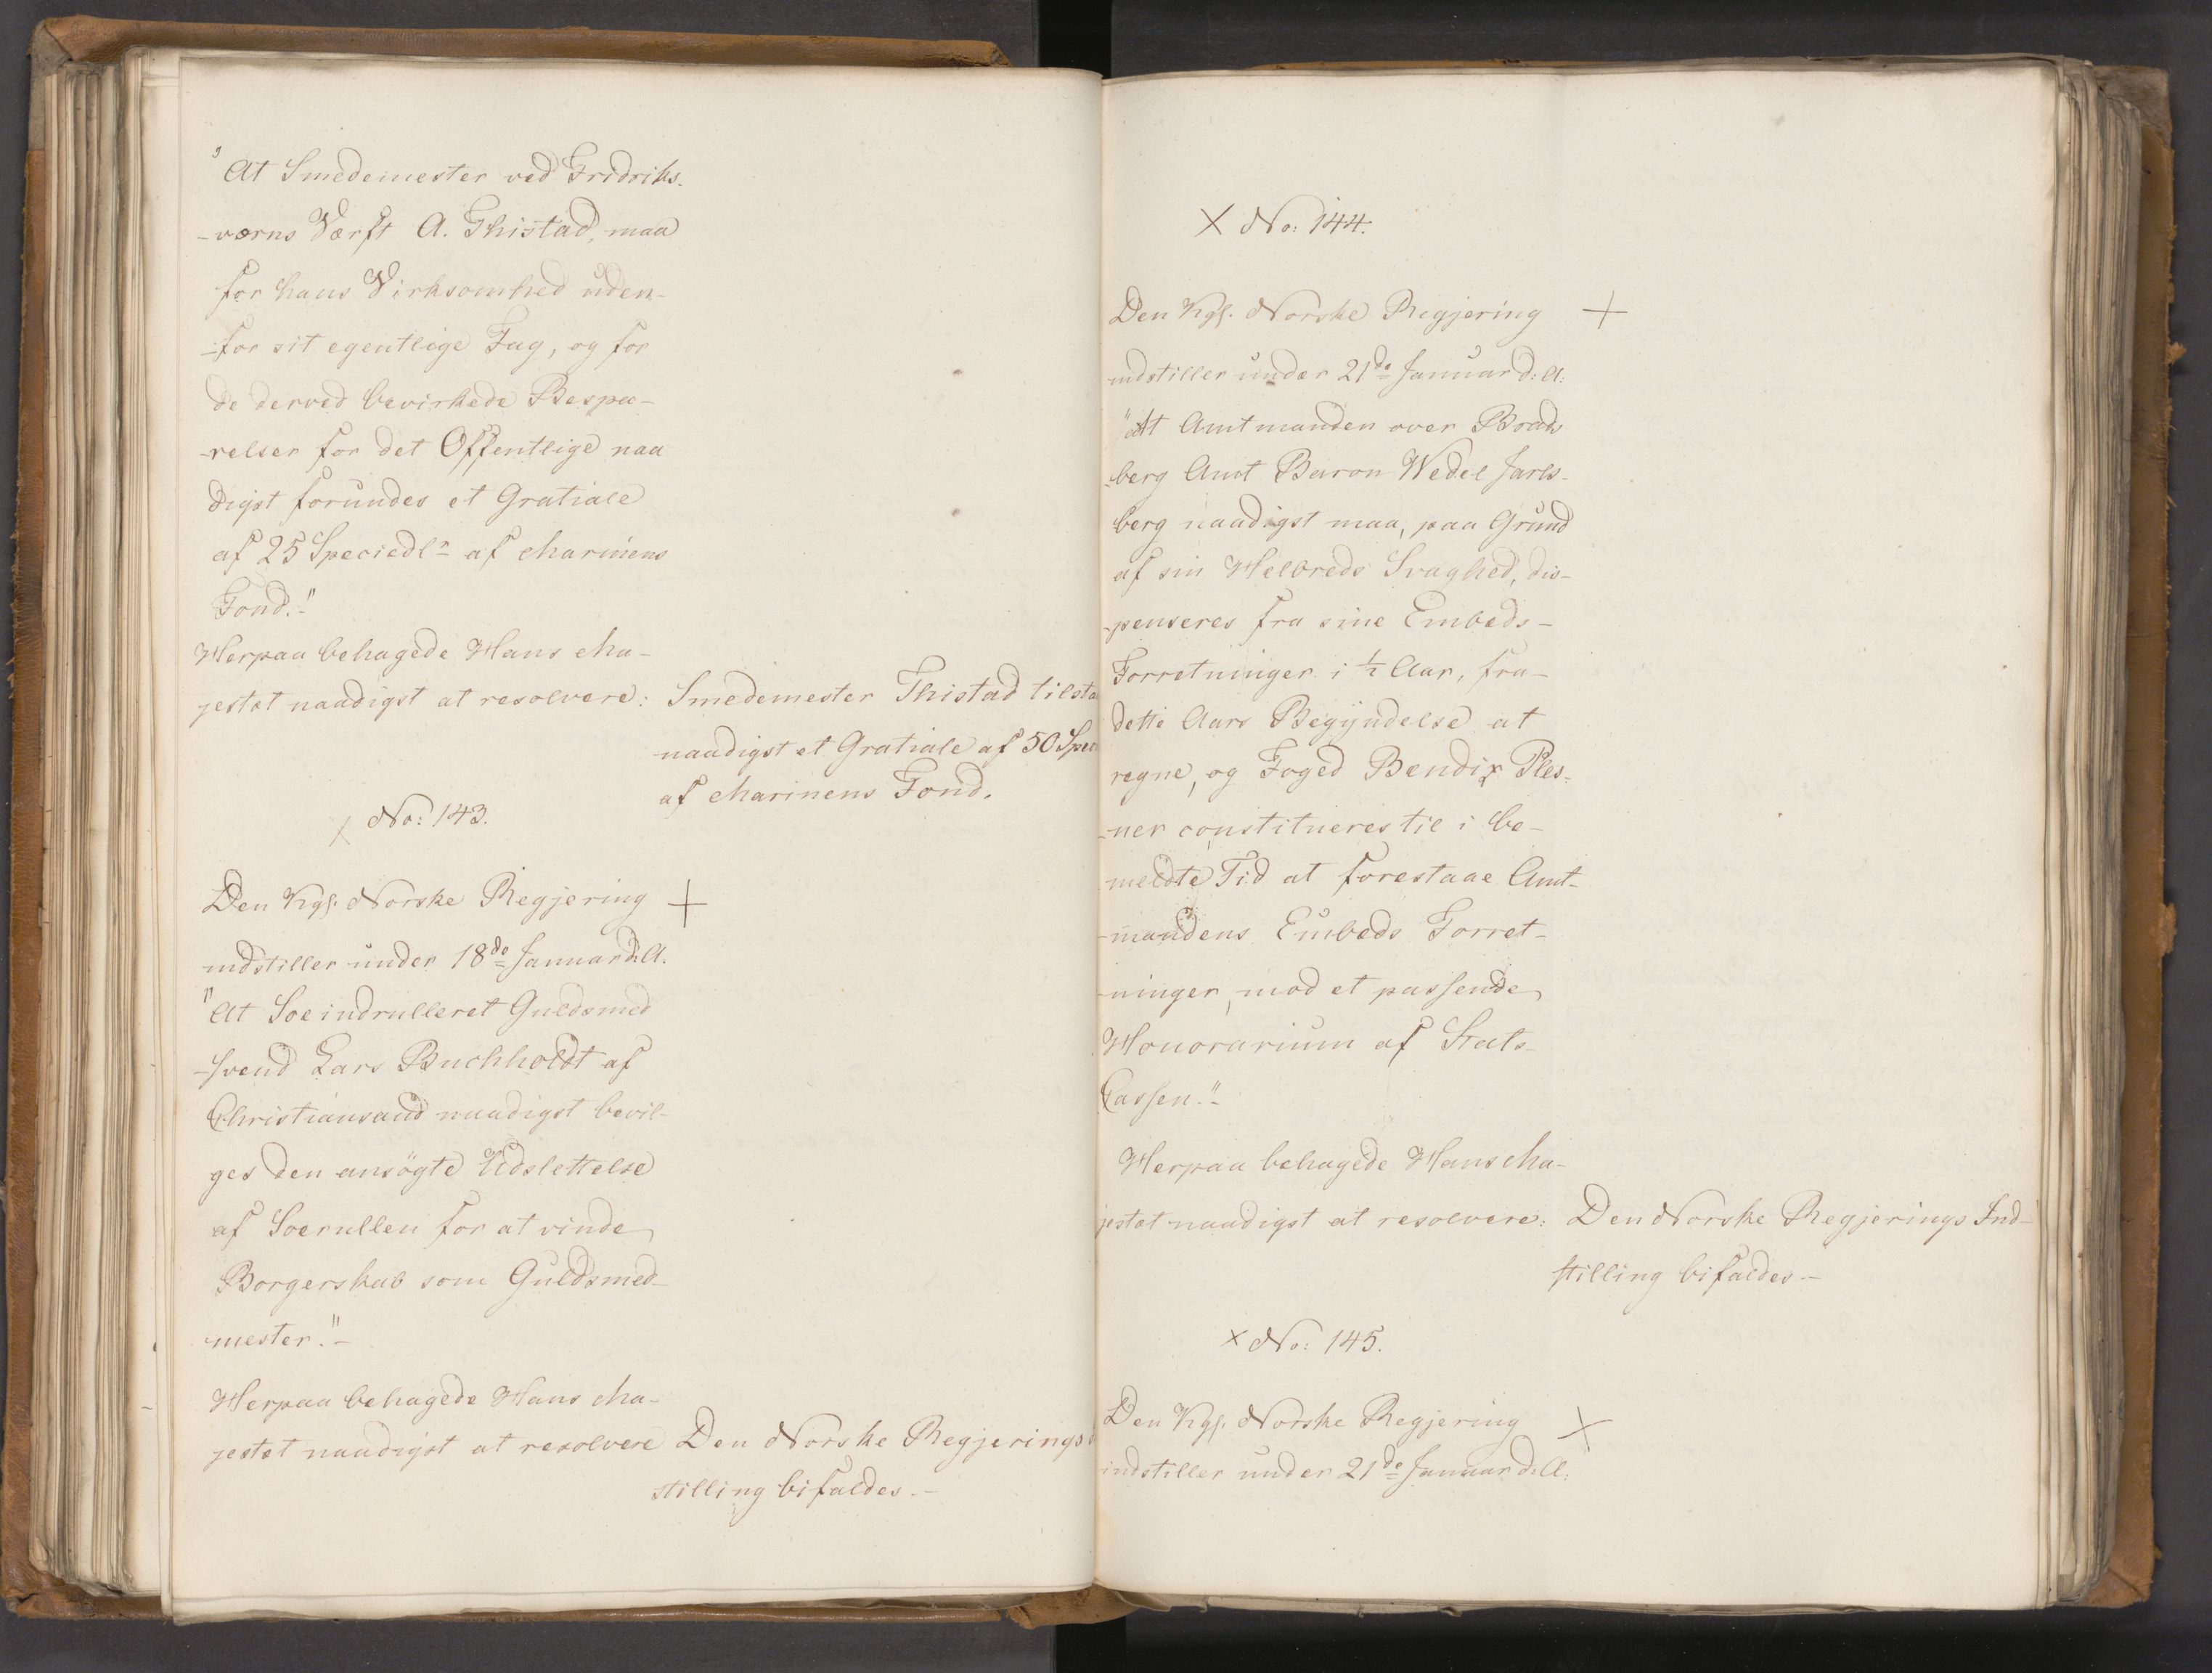 "At Smedemester ved Fridriks-
-værns Værft A. Thistad, maa
for hans Virksomhed uden-
-for sit egentlige Fag, og for
de derved bevirkede Bespa-
-relser for det Offentlige naa
digst forundes et Gratiale
af 25 Speciedlr af Marinens
Fond."
Herpaa behagede Hans Ma-
jestæt naadigst at resolvere: Smedemester Thistad tilsta
naadigst et Gratiale af 50 Spec
af Marinens Fond.
X No: 143.
Den Kgl. Norske Regjering +
indstiller under 18de Januar d:A:
"At Soeindrulleret Guldsmed
-svend Lars Buchholdt af
Christiansand naadigst bevil-
ges den ansögte Udslettelse
af Soerullen for at vinde
Borgerskab som Guldsmed-
mester."-
Herpaa behagede Hans Ma-
jestæt naadigst at resolvere Den Norske Regjerings
stilling bifaldes.-
X No: 144.
Den Kgl. Norske Regjering +
indstiller under 21de Januar d:A:
"At Amtmanden over Brads
-berg Amt Baron Wedel Jarls-
berg naadigst maa, paa Grund
af sin Helbreds Svaghed, dis-
-penseres fra sine Embeds-
Forretninger i ½ Aar, fra
dette Aars Begyndelse at
regne, og Foged Bendix Ples-
-ner constitueres til i be-
meldte Tid at forestaae Amt-
-mandens Embeds Forret-
-ninger, mod et passende
Honorarium af Stats-
Cassen."-
Herpaa behagede Hans Ma-
jestæt naadigst at resolvere: Den Norske Regjerings Ind-
stilling bifaldes-
X No: 145.
Den Kgl. Norske Regjering X
indstiller under 21de Januar d:A: